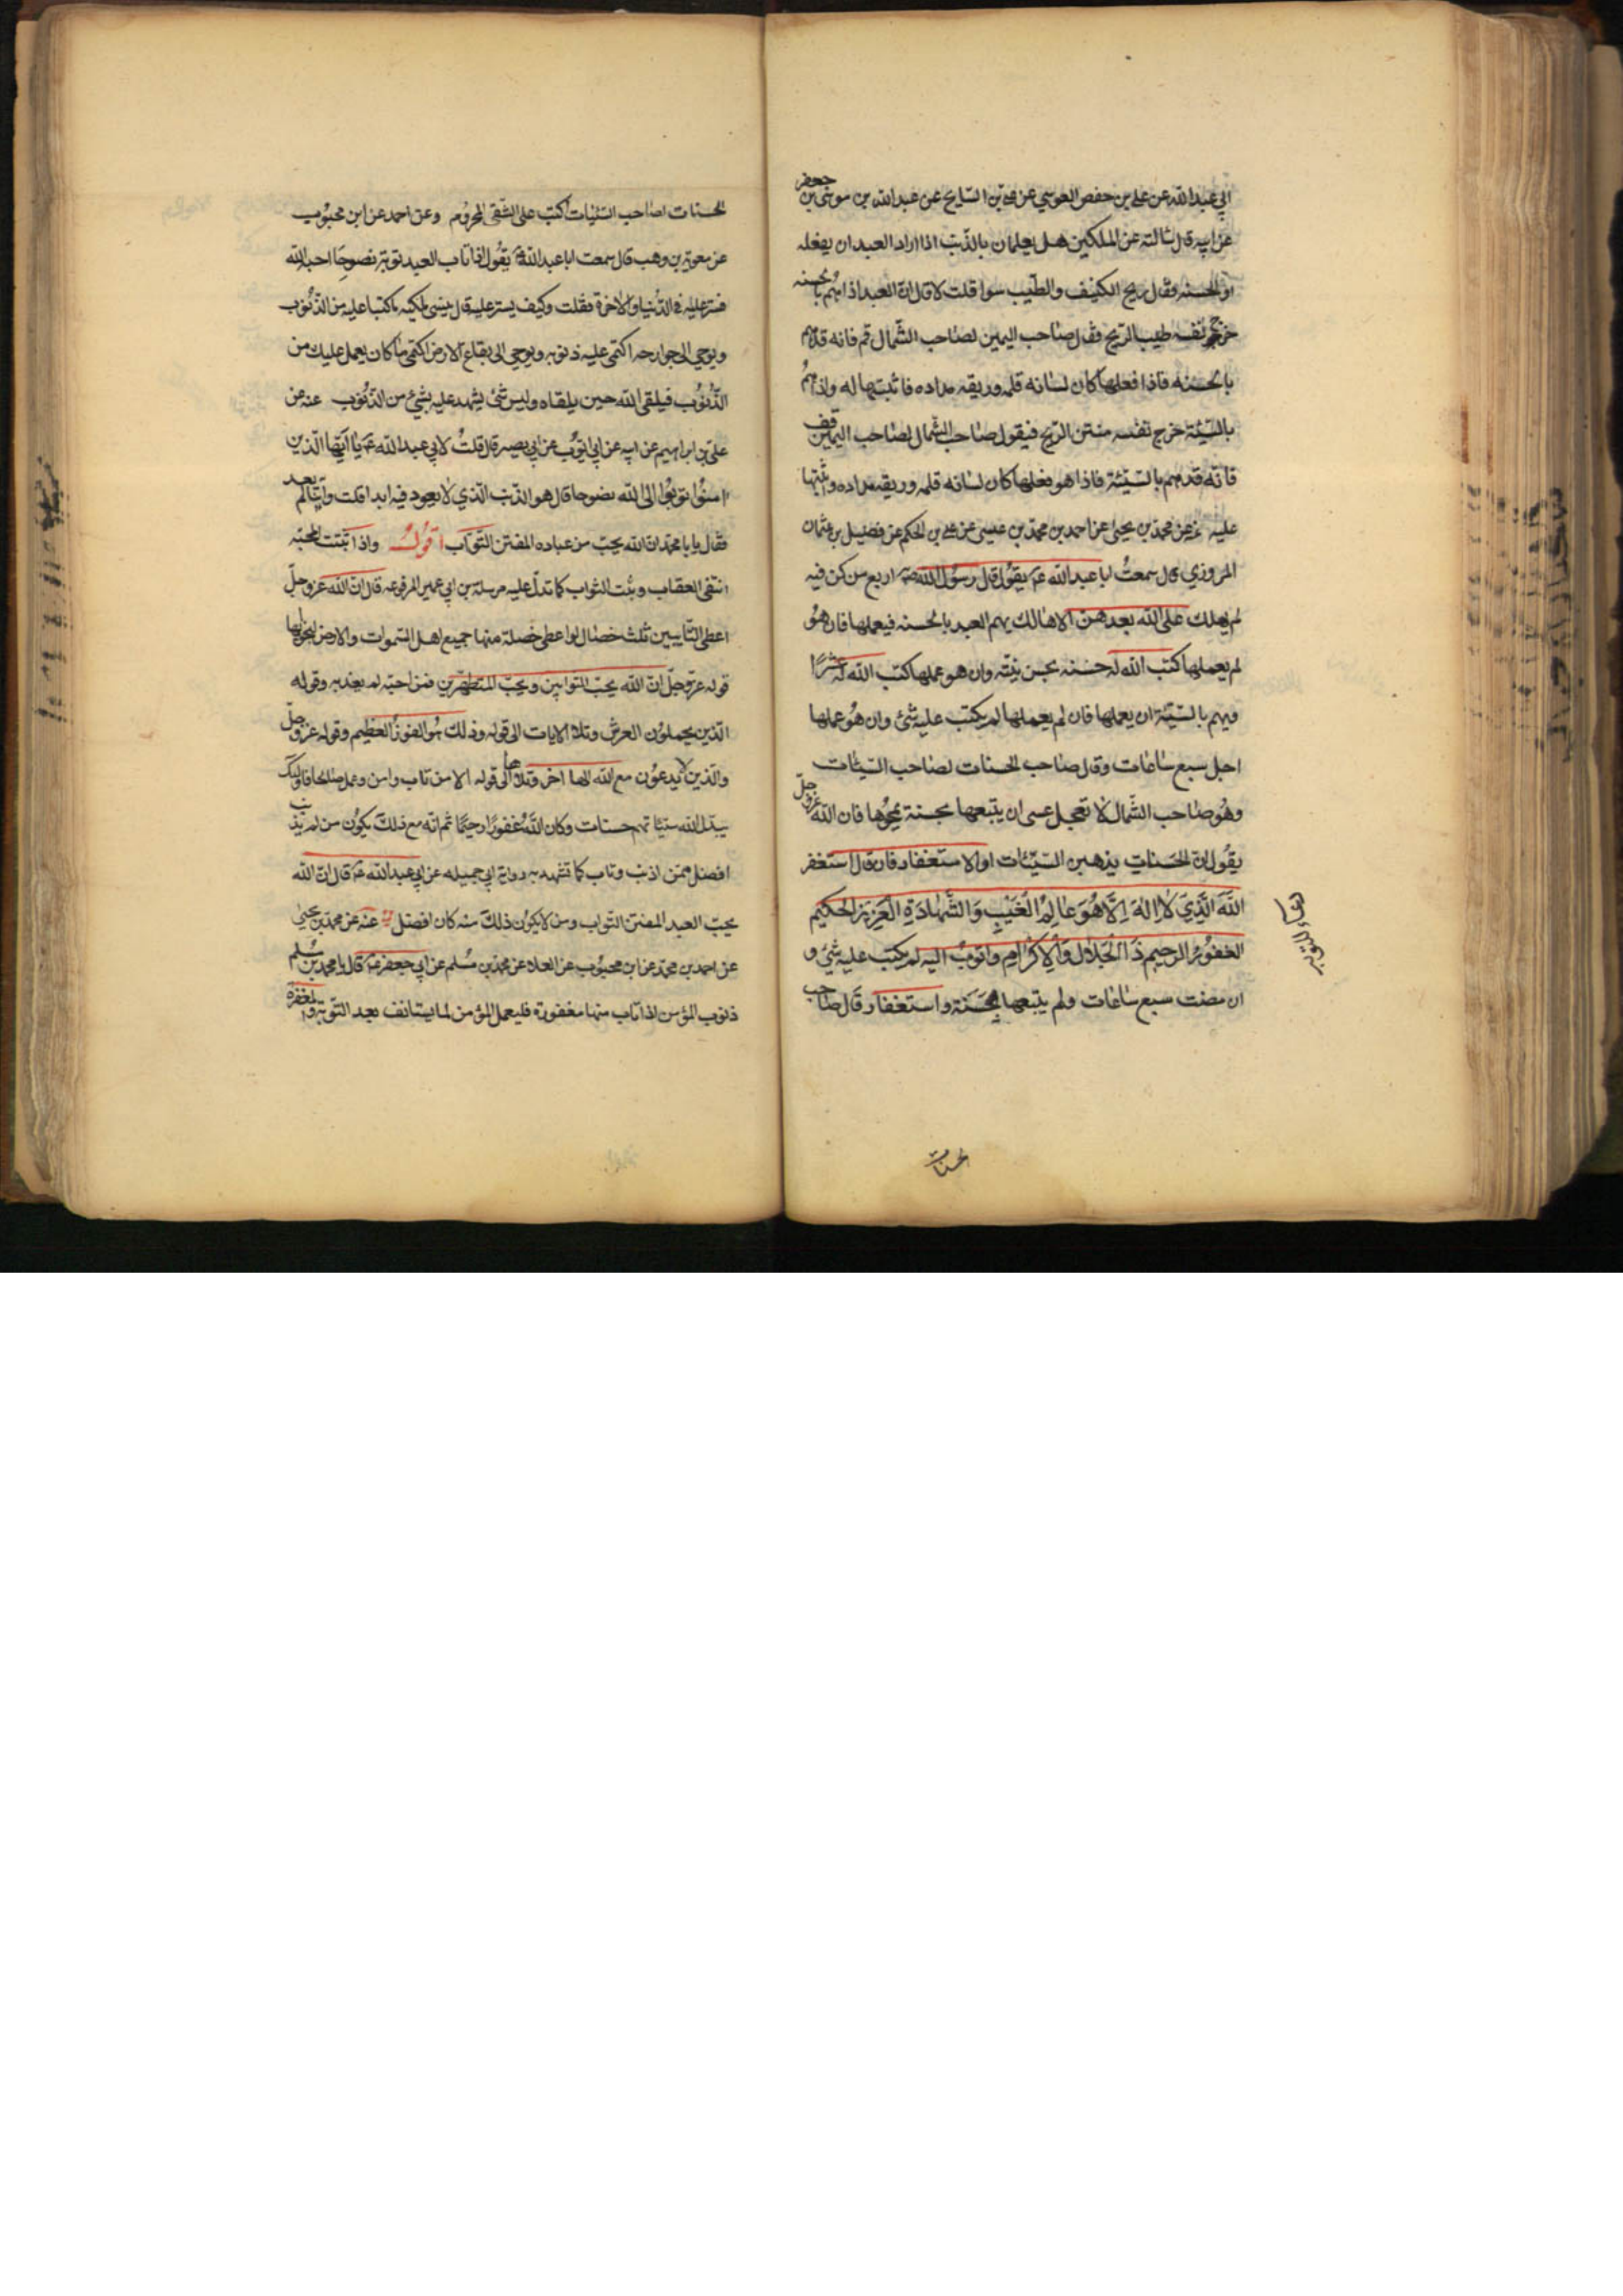 ابي عبد الله عن علي بن حفص العوسي عن علي بن السايح عن عبد الله بن موسى بن جعفر
عن ابيه قال سالته عن الملكين هل يعلمان بالذنب اذا اراد العبد ان يفعله
او الحسنه فقال ريح الكنيف والطيب سوا قلت لا قال ان العبد اذا هم بالحسنه
خرج نفسه طيب الريح فقال صاحب اليمين لصاحب الشمال قم فانه قد هم
بالحسنه فاذا فعلها كان لسانه قلمه وريقه مداده فاثبتها له واذا هم
بالسيئة خرج نفسه منتن الريح فيقول صاحب الشمال لصاحب اليمين قف
فانه قد هم بالسيئة فاذا هو فعلها كان لسانه قلمه وريقه مداده واثبتها
عليه عن محمد بن يحيى عن احمد بن محمد بن عيسى عن علي بن الحكم عن فضيل بن عثمان
المروزي قال سمعتُ ابا عبد الله عم يقول قال رسول الله صم اربع من كن فيه
لم يهلك على الله بعدهن الا هالك يهم العبد بالحسنه فيعملها فان هُو
لم يعملها كتب الله له حسنه بحسن نيته وان هو عملها كتب الله له عشرًا
ويهم بالسيئة ان يعملها فان لم يعملها لم يكتب عليه شئ وان هُو عملها
اجل سبع ساعات وقال صاحب الحسنات لصاحب السيئات
وهُو صاحب الشمال لا تعجل عسى ان يتبعها بحسنة يمحُوها فان الله عز وجل
يقُول انّ الحَسَناتِ يذهبن السيّئات او الاستغفار فان قال استغفر
اللهَ الَّذِي لا اِلٰهَ اِلَّا هُوَ عالِمُ الْغَيْبِ وَالشَّهادَةِ الْعَزِيزُ الحَكيم
الغفوُرُ الرحيم ذَا الجَلال وَالاِكْرامِ واتوبُ اليه لم يكتب عليه شئ و
ان مضت سبع ساعات ولم يتبعها بحَسَنة واستغفار قال صاحب
دعاء للتوبه
حسنات
الحسنات لصاحب السيّئات اكتب على الشقى المحروم وعن احمد عن ابن محبوب
عن معوية بن وهب قال سمعت ابا عبد الله عم يقُول اذا تاب العبد توبة نصوحا احبه الله
فستر عليه في الدّنيا والاخرة فقلت وكيف يستر عليه قال ينسى ملكيه ما كتبا عليه من الذّنُوب
ويوحي الى جوارحه اكتمى عليه ذنوبه ويوحي الى بقاع الارض اكتمى ما كان يعمل عليك من
الذّنُوب فيلقى الله حين يلقاه وليس شئ يشهد عليه بشئ من الذنوب عنه عن
علي بن ابراهيم عن ابيه عن ابي ايوب عن ابي بصير قال قلتُ لابي عبد الله عم يا ايّها الّذين
امنُوا توبُوا الى الله نصوحا قال هو الذنب الّذي لا يعود فيه ابدا قلت وايّنا لم يعد
فقال يا با محمّد ان الله يحبّ من عباده المفتن التّوّاب اقولُ واذا ثبتت المحبّه
انتفى العقاب وثبت الثواب كما تدلّ عليه مرسلة بن ابي عمير المرفوعه قال ان الله عز وجلّ
اعطى التّايبين ثلث خصال لو اعطى خصلة منها جميع اهل السّموات والارض لنجوا بها
قوله عزّ وجلّ انّ الله يحبّ التوابين ويحبّ المتطهّرين فمن احبّه لم يعذبه وقوله
الّذين يحملوُن العرش وتلا الايات الى قوله وذلك هُو الفوزُ العظيم وقوله عز وجلّ
والّذين لا يدعوُن مع الله الها اخر وتلاها الى قوله الا من تاب وامن وعمل صالحا فاولئك
يبدّل الله سيّئاتهم حسنات وكان الله غفورًا رحيمًا ثم انه مع ذلك يكوُن من لم يذنب
افضل ممّن اذنب وتاب كما تشهد به رواية ابي جميله عن ابي عبد الله عم قال انّ الله
يحبّ العبد المفتن التّواب ومن لا يكوُن ذلك منه كان افضل عنه عن محمد بن يحيى
عن احمد بن محمّد عن ابن محبُوب عن العلا عن محمّد بن مُسلم عن ابي جعفر عم قال يا محمد بن مُسلم
ذنوب المؤمن اذا تاب منها مغفورة فليعمل المؤمن لما يستانف بعد التوبة والمغفرة